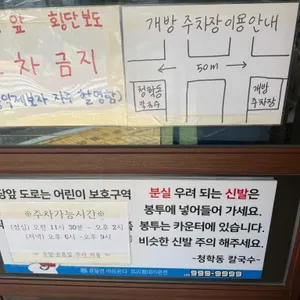 앞 횡단보도
차 금지
개방 주차장 이용안내
← 50m →
청학동
칼국수
개방
주차장
당앞 도로는 어린이 보호구역
※주차가능시간※
(점심) 오전 11시 30분 ~ 오후 2시
(저녁) 오후 6시 ~ 오후 9시
분실 우려 되는 신발은
봉투에 넣어들어 가세요.
봉투는 카운터에 있습니다.
비슷한 신발 주의 해주세요.
-청학동 칼국수-
999-9999